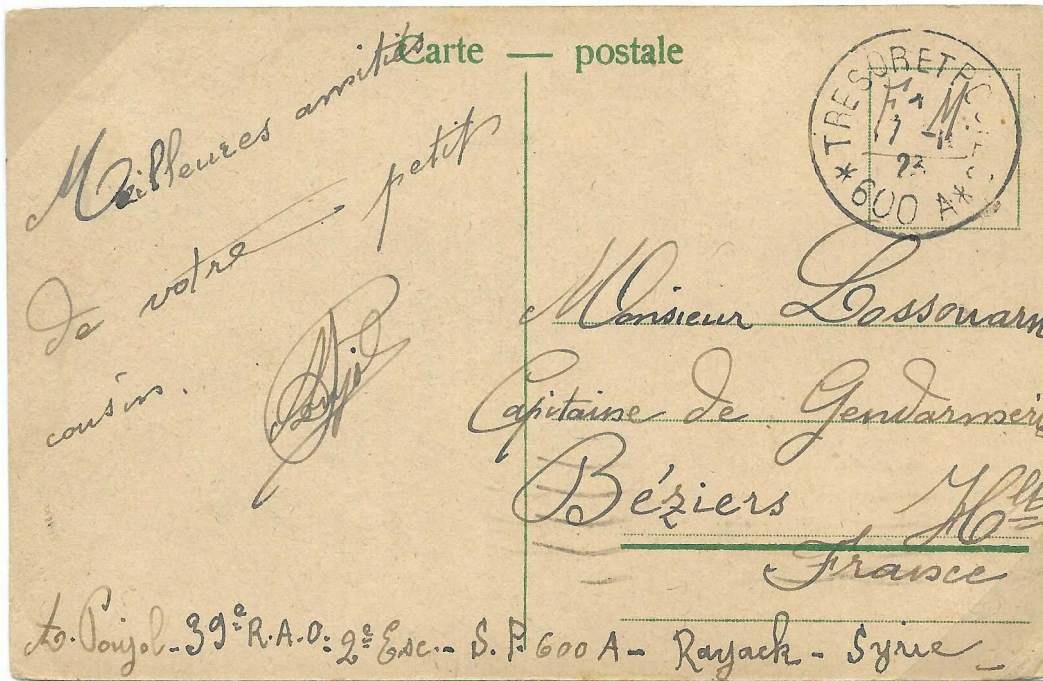 Carte — postale
TRESOR ET POSTES
F. M.
23
* 600 A *
Meilleures amitiés
de votre petit
cousin.
Poujol
Monsieur Lossouarn
Capitaine de Gendarmerie
Béziers Hlt
France
Poujol - 39e R.A.O: 2e Esc. - S.P. 600 A - Rayack - Syrie